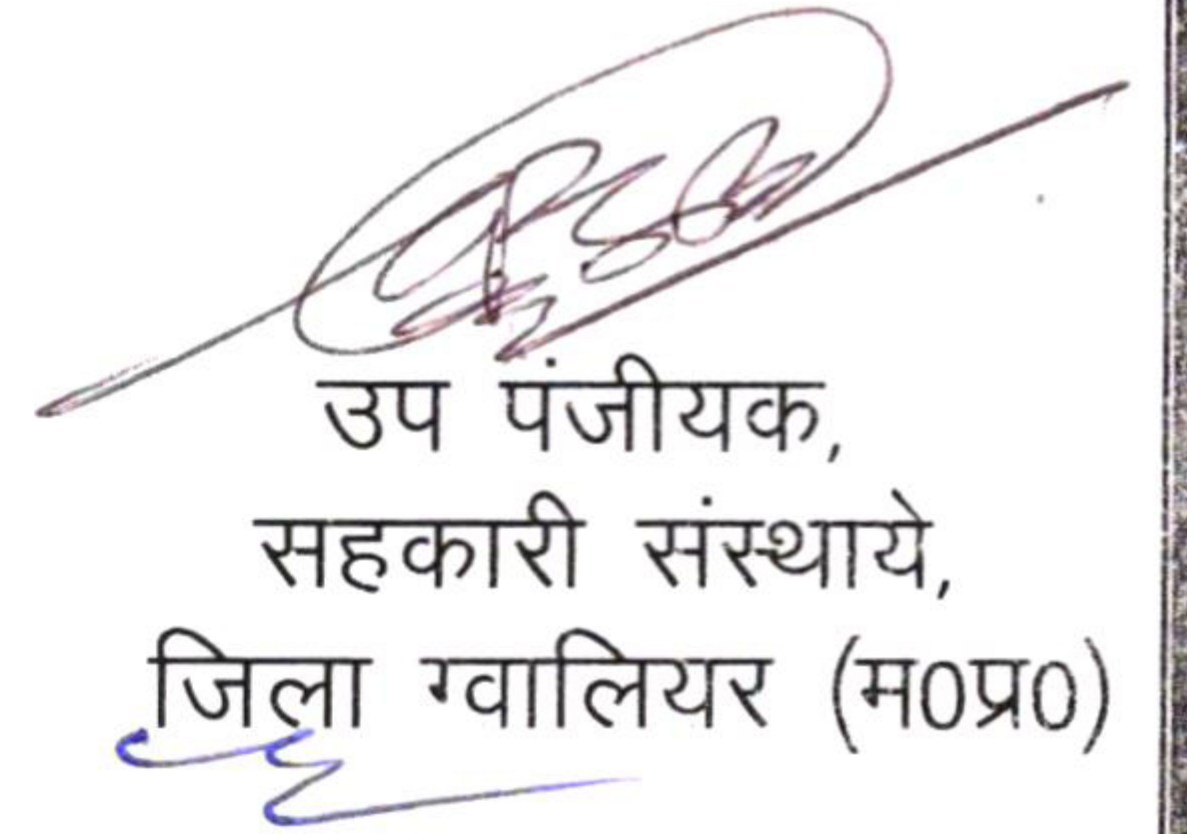 उप पंजीयक,
सहकारी संस्थाये,
जिला ग्वालियर (म0प्र0)